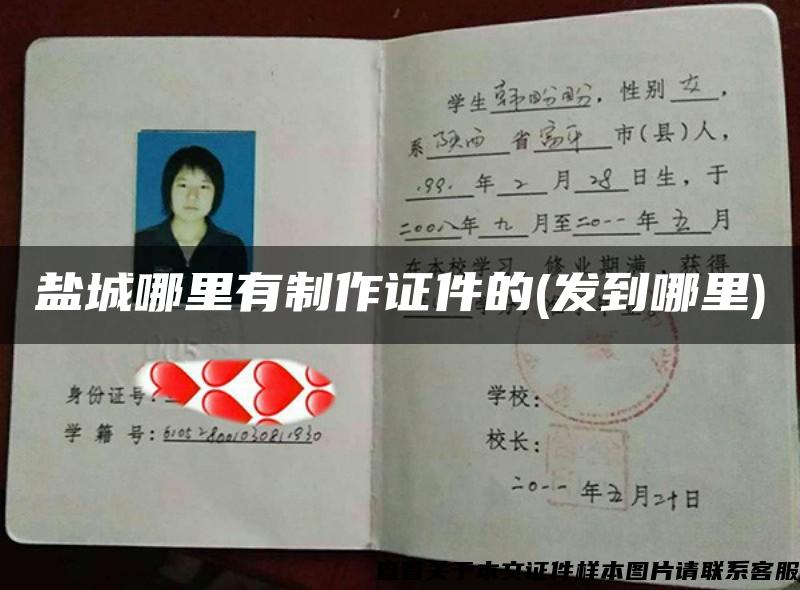 学生韩盼盼，性别女，
系陕西省富平市(县)人，
1991年2月28日生，于
二00八年九月至二0一一年五月
在本校学习，修业期满，获得
盐城哪里有制作证件的(发到哪里)
身份证号：
学籍号：
学校：
校长：
二0一一年五月二十日
查看关于本文证件样本图片请联系客服